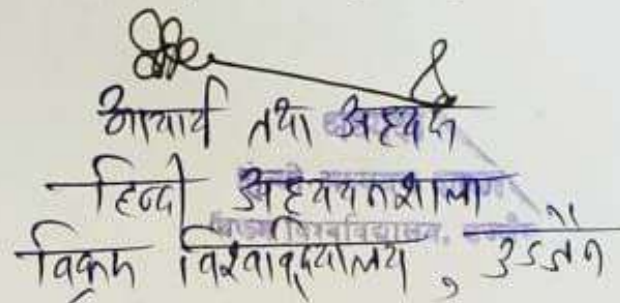 आचार्य तथा अध्यक्ष
हिन्दी अध्ययनशाला
विक्रम विश्वविद्यालय, उज्जैन